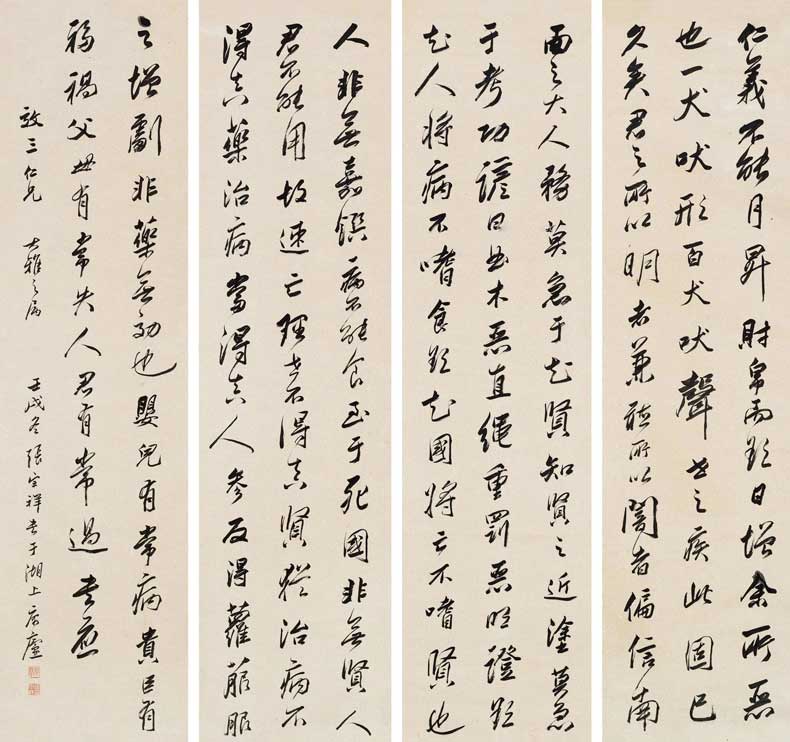 仁義不能月昇財帛而欲日增余所惡
也一犬吠形百犬吠聲世之疾此固已
久矣君之所以明者兼聽所以闇者偏信南
面之大人務莫急于知賢知賢之近塗莫急
于考功諺曰曲木惡直繩重罰惡明證欲
知人將病不嗜食欲知國將亡不嗜賢也
人非無嘉饌病不能食至于死國非無賢人
君不能用故速亡理世不得真賢猶治病不
得真藥治病當得真人參反得蘿菔服
之增劇非藥無功也嬰兒有常病貴臣有
福禍父母有常失人君有常過 書應
敬三仁兄 大雅之屬 壬戌冬張宗祥書于湖上寄廬